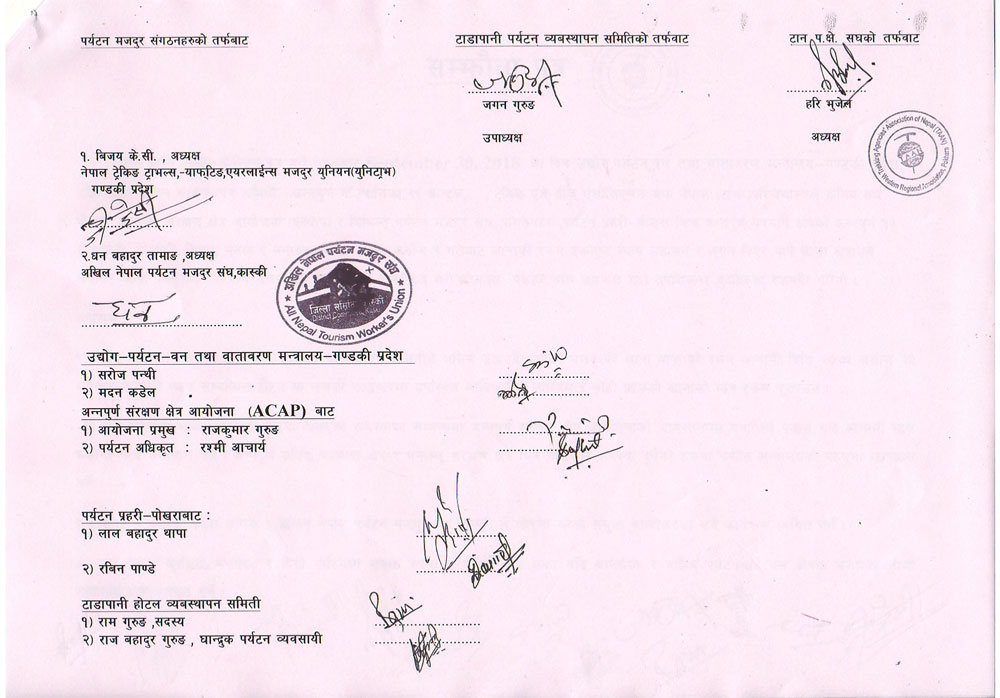 पर्यटन मजदुर संगठनहरुको तर्फबाट
टाडापानी पर्यटन व्यबस्थापन समितिको तर्फवाट
टान प.क्षे. सघको तर्फवाट
जगन गुरुङ
हरि भुजेल
उपाध्यक्ष
अध्यक्ष
Trekking Agencies' Association of Nepal (TAAN)
Western Regional Association, Pokhara
१. बिजय के.सी. , अध्यक्ष
नेपाल ट्रेकिङ ट्राभल्स,-याफ्टिङ,एयरलाईन्स मजदुर युनियन(युनिटाभ)
गण्डकी प्रदेश
२.धन बहादुर तामाङ ,अध्यक्ष
अखिल नेपाल पर्यटन मजदुर संघ,कास्की
धन
अखिल नेपाल पर्यटन मजदुर संघ
जिल्ला समिति कास्की
All Nepal Tourism Worker's Union
उद्योग–पर्यटन–वन तथा वातावरण मन्त्रालय–गण्डकी प्रदेश
१) सरोज पन्थी
२) मदन कडेल .
अन्नपुर्ण संरक्षण क्षेत्र आयोजना (ACAP) बाट
१) आयोजना प्रमुख : राजकुमार गुरुङ
२) पर्यटन अधिकृत : रश्मी आचार्य
पर्यटन प्रहरी-पोखराबाट :
१) लाल बहादुर थापा
२) रबिन पाण्डे
टाडापानी होटल व्यबस्थापन समिती
१) राम गुरुङ ,सदस्य
२) राज बहादुर गुरुङ , घान्द्रुक पर्यटन व्यवसायी